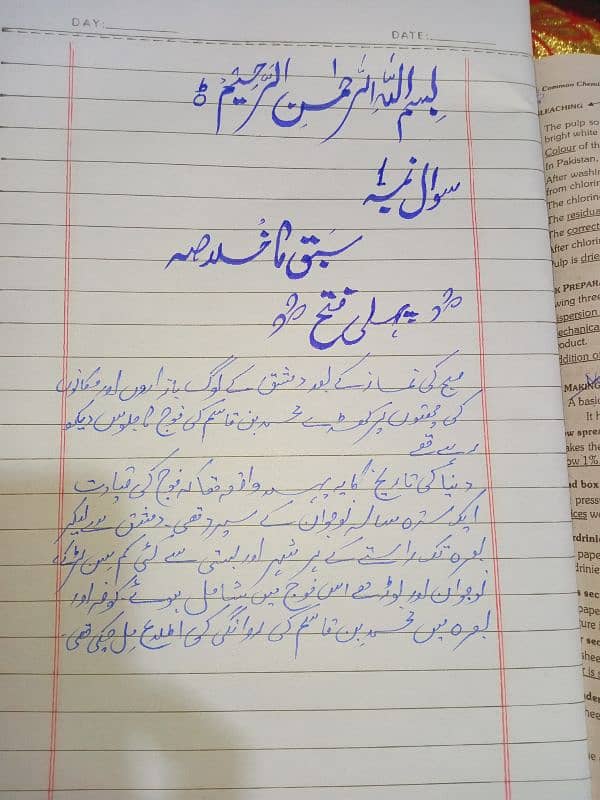 DAY:
DATE:
بِسمِ اللہِ الرَّحمٰنِ الرَّحِیم
سوال نمبر 1
سَبق کا خُلاصہ
"پہلی فتح"
صبح کی نماز کے بعد دمشق کے لوگ بازاروں اور مکانوں
کی چھتوں پر کھڑے محمد بن قاسم کی فوج کا جلوس دیکھ
رہے تھے
دنیا کی تاریخ کا یہ پہلا واقعہ تھا کہ فوج کی قیادت
ایک سترہ سالہ نوجوان کے سپرد تھی۔ دمشق سے لیکر
بصرہ تک راستے کے ہر شہر اور بستی سے کئی کم سِن لڑکے
نوجوان اور بوڑھے اس فوج میں شامل ہوئے کوفہ اور
بصرہ میں محمد بن قاسم کی روانگی کی اطلاع مِل چکی تھی۔
Common Chemi
BLEACHING
The pulp so
bright white
Colour of th
In Pakistan,
After washin
from chlorin
The chlorine
The residua
The correct
After chlorin
Pulp is drie
K PREPARA
wing three
ispersion
echanical
oduct.
ddition of
MAKING
A basic
It h
w sprea
akes the
ow 1%
d box
pressu
ices we
rdrinie
paper
drinie
s sec
paper
ture i
r sec
shee
r is s
nder
shee